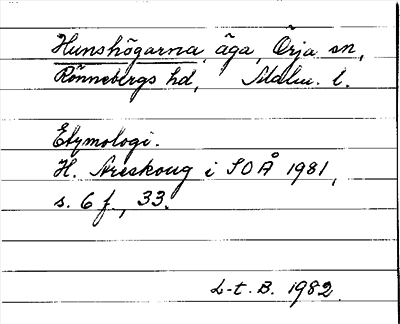 Hunshögarna, äga, Örja sn,
Rönnebergs hd, Malm. l.
Etymologi.
H. Areskoug i SOÅ 1981,
s. 6 f., 33.
L-t. B. 1982.